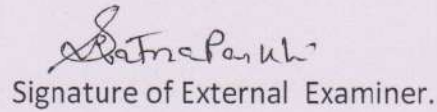 Signature of External Examiner.